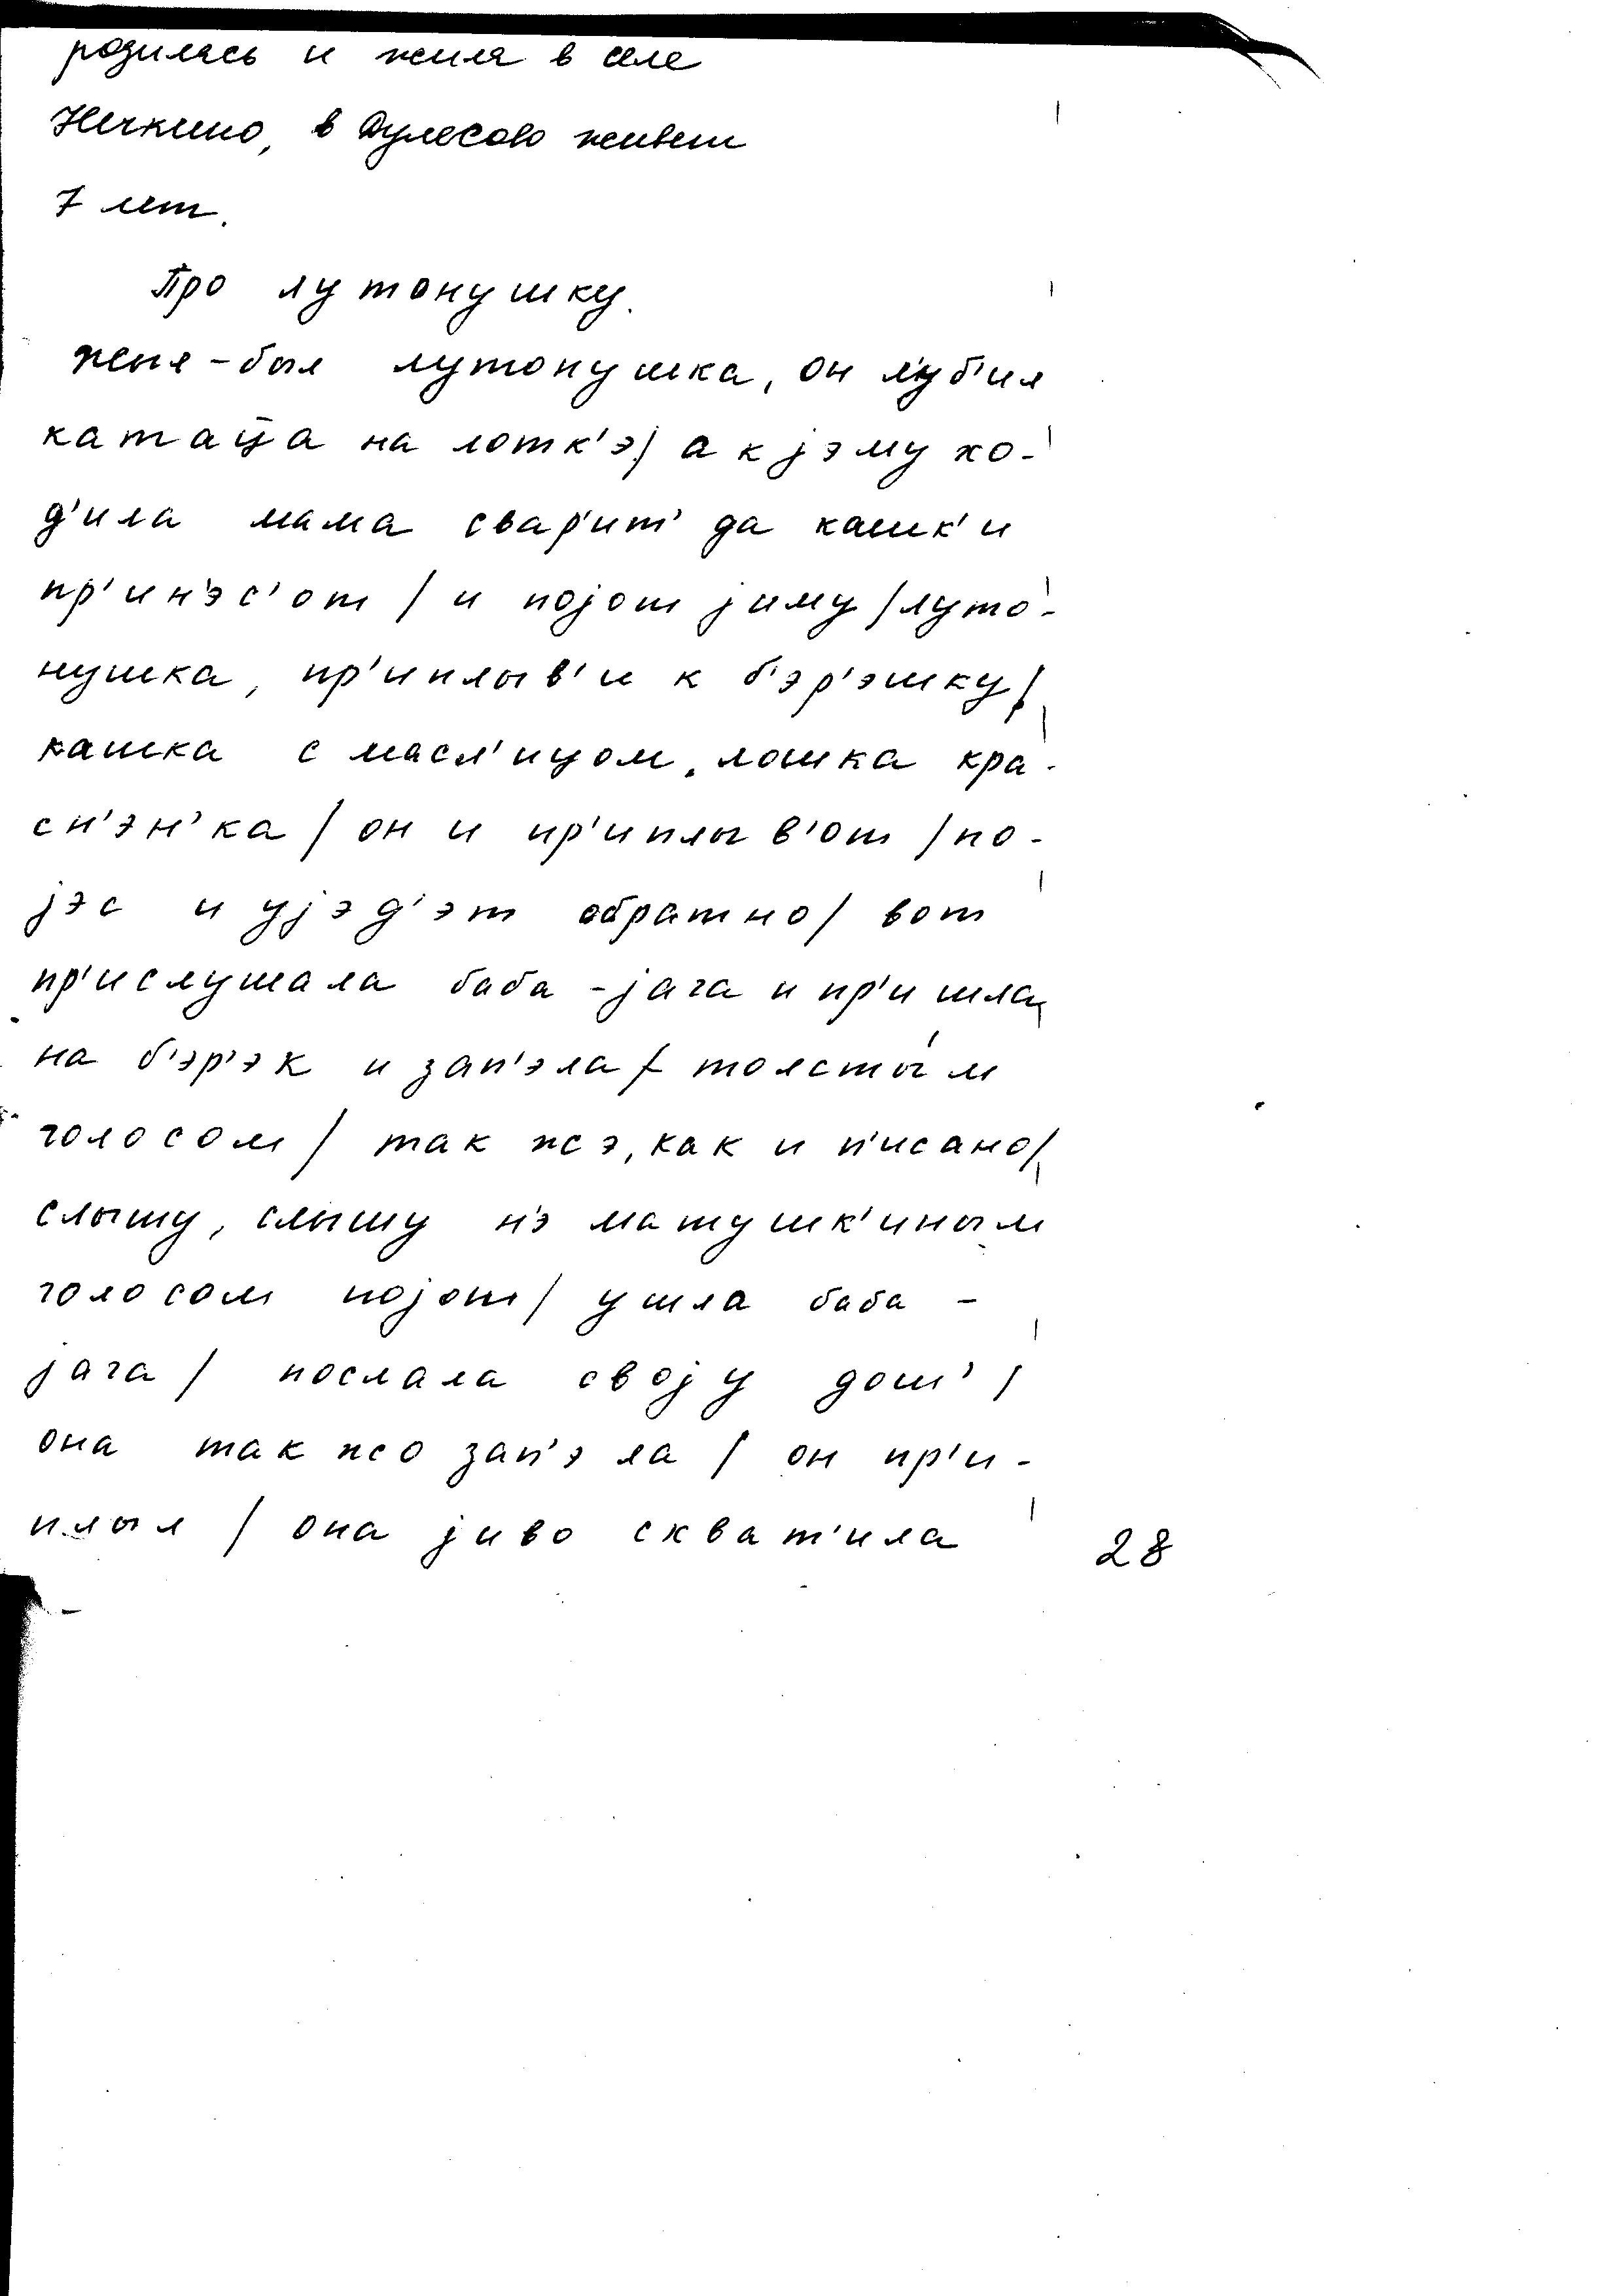 родилась и жила в селе
Нечкино, в Дулесово живет
7 лет.
Про лутонушку.
жыл-был лутонушка, он л'уб'ил
катаца на лотк'э/ а к jэму хо-
д'ила мама свар'ит' да кашк'и
пр'ин'эс'от / и поjот jиму /луто-
нушка, пр'иплыв'и к б'эр'эшку/
кашка с масл'ицом, лошка кра-
сн'эн'ка / он и пр'иплыв'от / по-
jэс и уjэд'эт обратно/ вот
пр'ислушала баба-jага и пр'ишла
на б'эр'эк и зап'эла/ толсты́м
голосом/ так жэ, как и п'исано/
слышу, слышу н'э матушк'иным
голосом поjот/ ушла баба-
jага/ послала своjу дош'/
она так жо зап'эла / он пр'и-
плыл / она jиво схват'ила
28